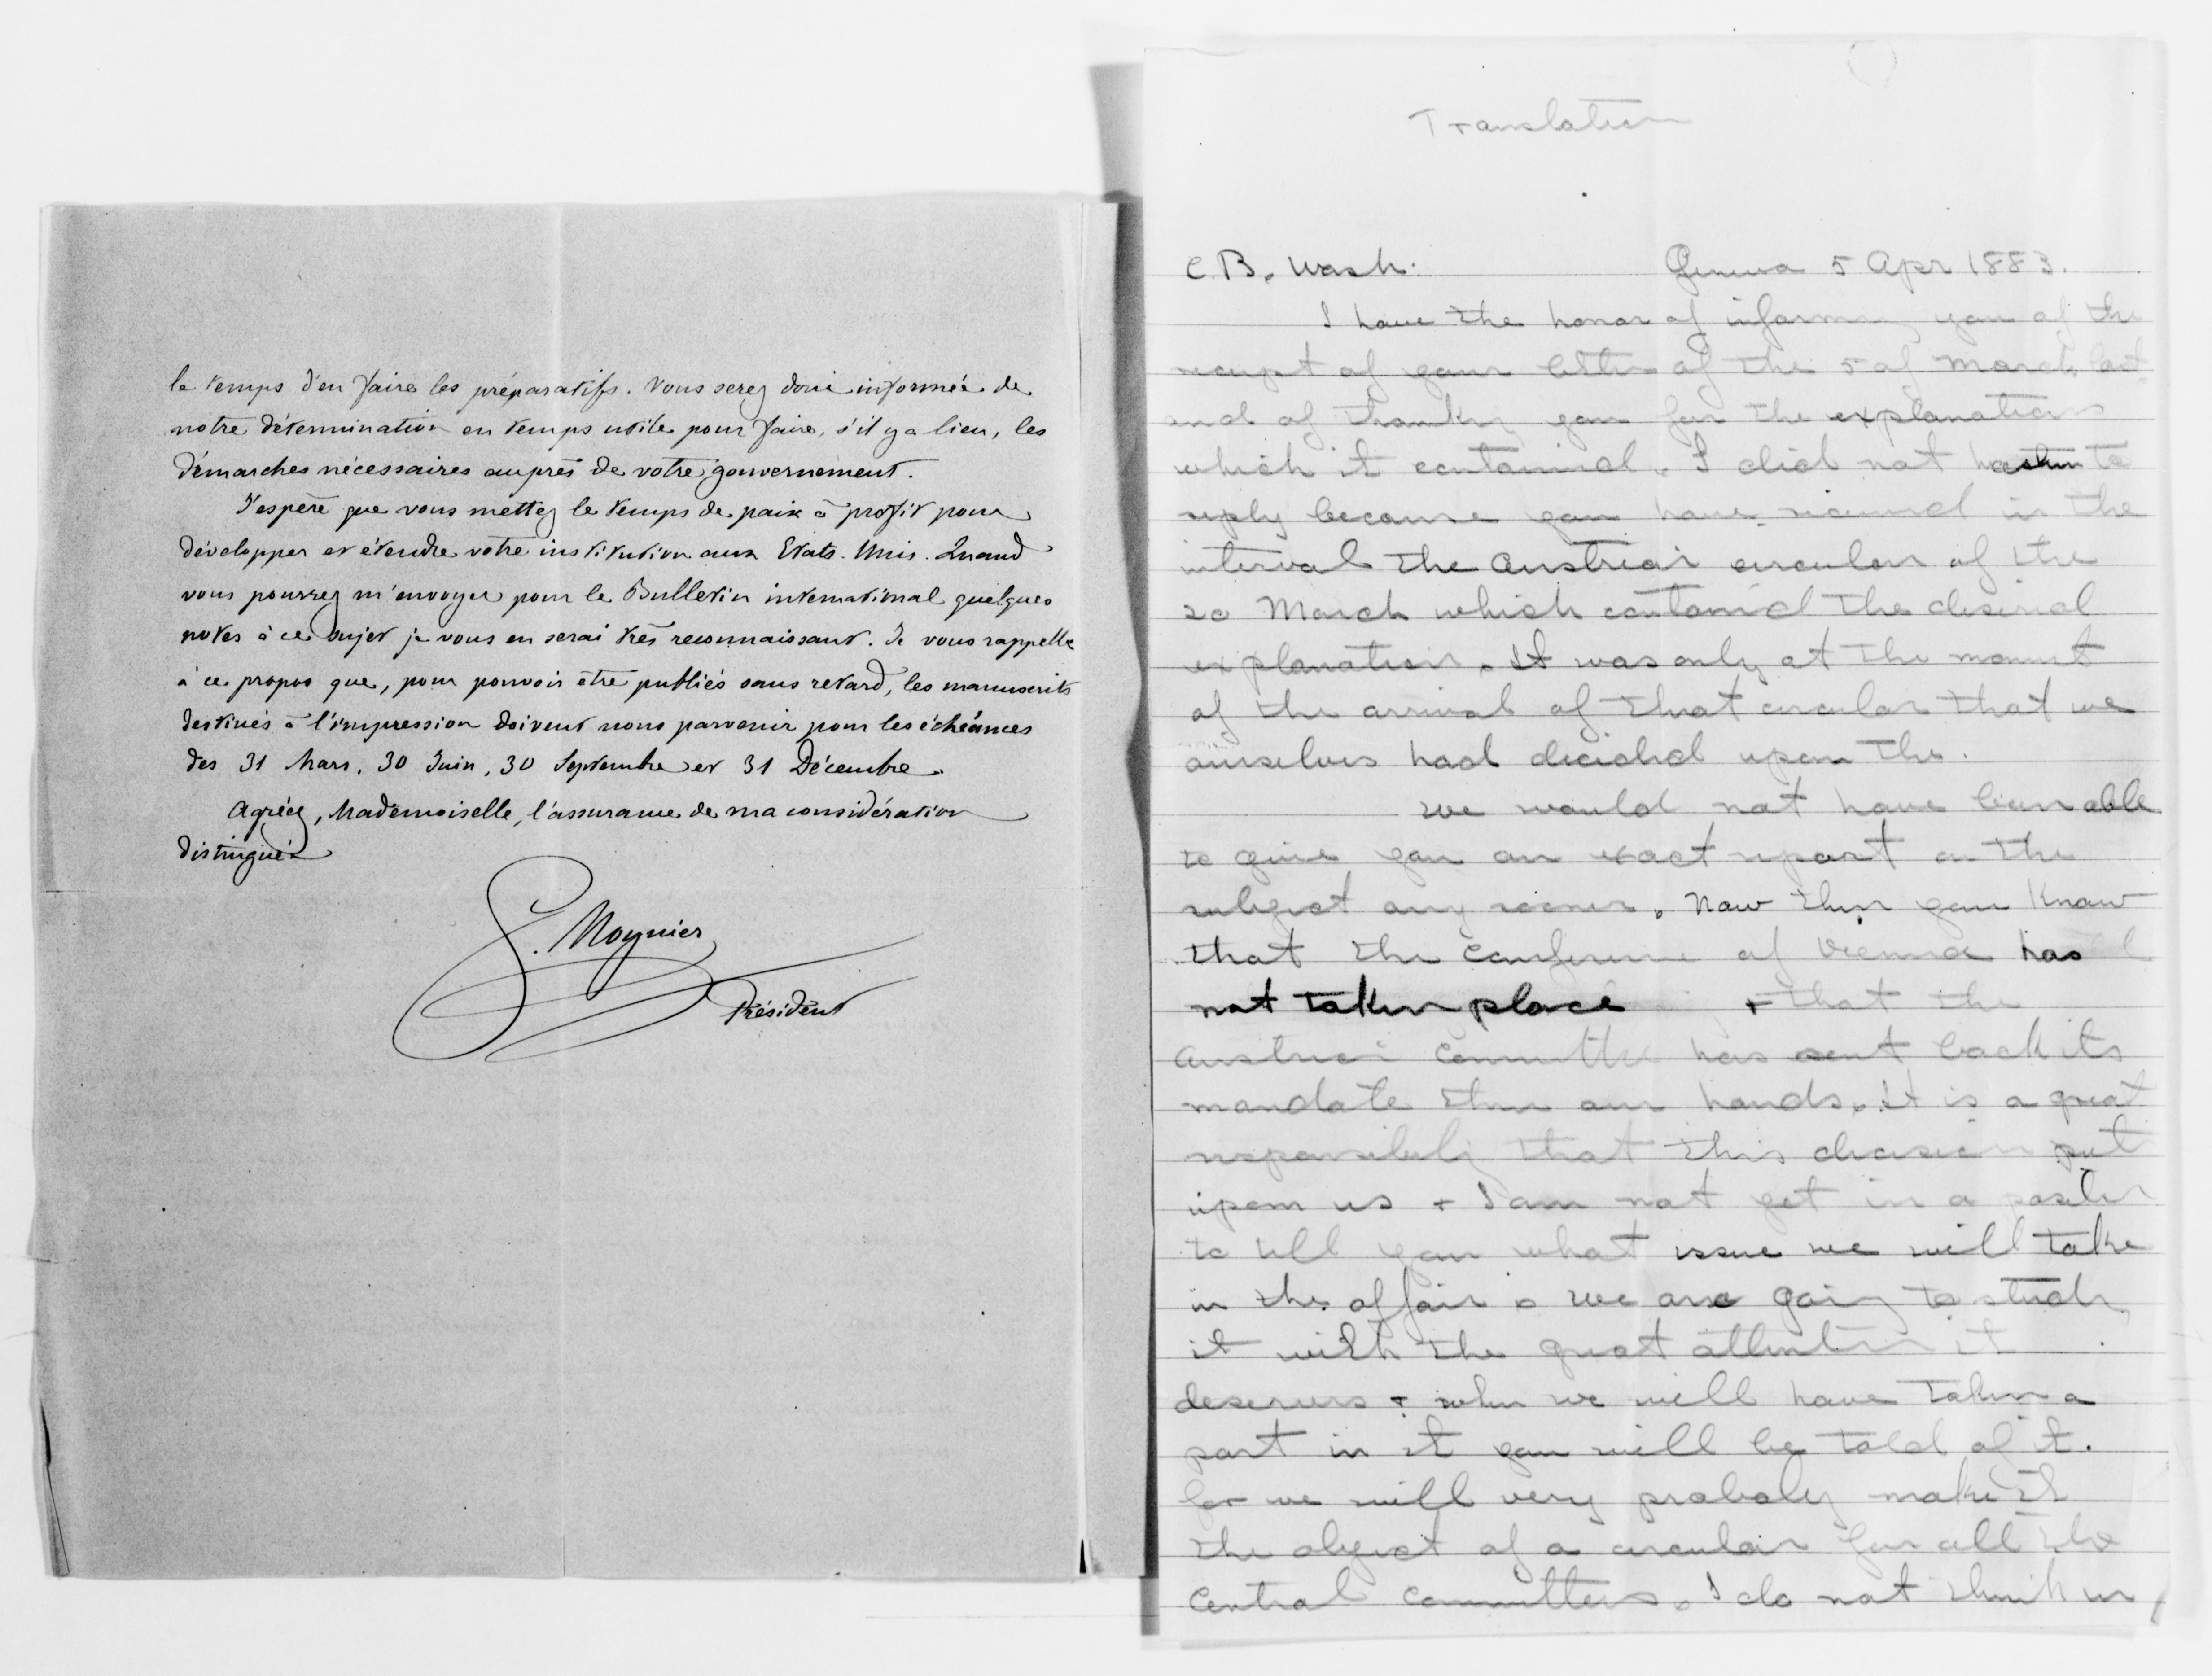 le temps d'en faire les préparatifs. Vous serez donc informée de
notre détermination en temps utile pour faire, s'il y a lieu, les
démarches nécessaires auprès de votre gouvernement.
J'espère que vous mettez le temps de paix à profit pour
développer et étendre votre institution aux Etats-Unis. Quand
vous pourrez m'envoyer pour le Bulletin international quelques
notes à ce sujet je vous en serai très reconnaissant. Je vous rappelle
à ce propos que, pour pouvoir être publiés sans retard, les manuscrits
destinés à l'impression doivent nous parvenir pour les échéances
des 31 Mars, 30 Juin, 30 Septembre et 31 Décembre.
Agréez, Mademoiselle, l'assurance de ma considération
distinguée
G. Moynier
Président
Translation
C.B. Wash: Geneva 5 Apr 1883.
I have the honor of informing you of the
receipt of your letter of the 5 of March last
and of thanking you for the explanations
which it contained. I did not hasten to
reply because you have received in the
interval the Austrian circular of the
20 March which contained the desired
explanation. It was only at the moment
of the arrival of that circular that we
ourselves had decided upon the.
We would not have been able
to give you an exact report on the
subject any sooner. Now then you know
that the Conference of Vienna has
not taken place + that the
Austrian Committee has sent back its
mandate thru our hands. It is a great
responsibility that this decision put
upon us + I am not yet in a position
to tell you what issue we will take
in the affair. We are going to study
it with the great attention it
deserves + when we will have taken a
part in it you will be told of it.
for we will very probably make it
the object of a circular for all the
Central Committees. I do not think we